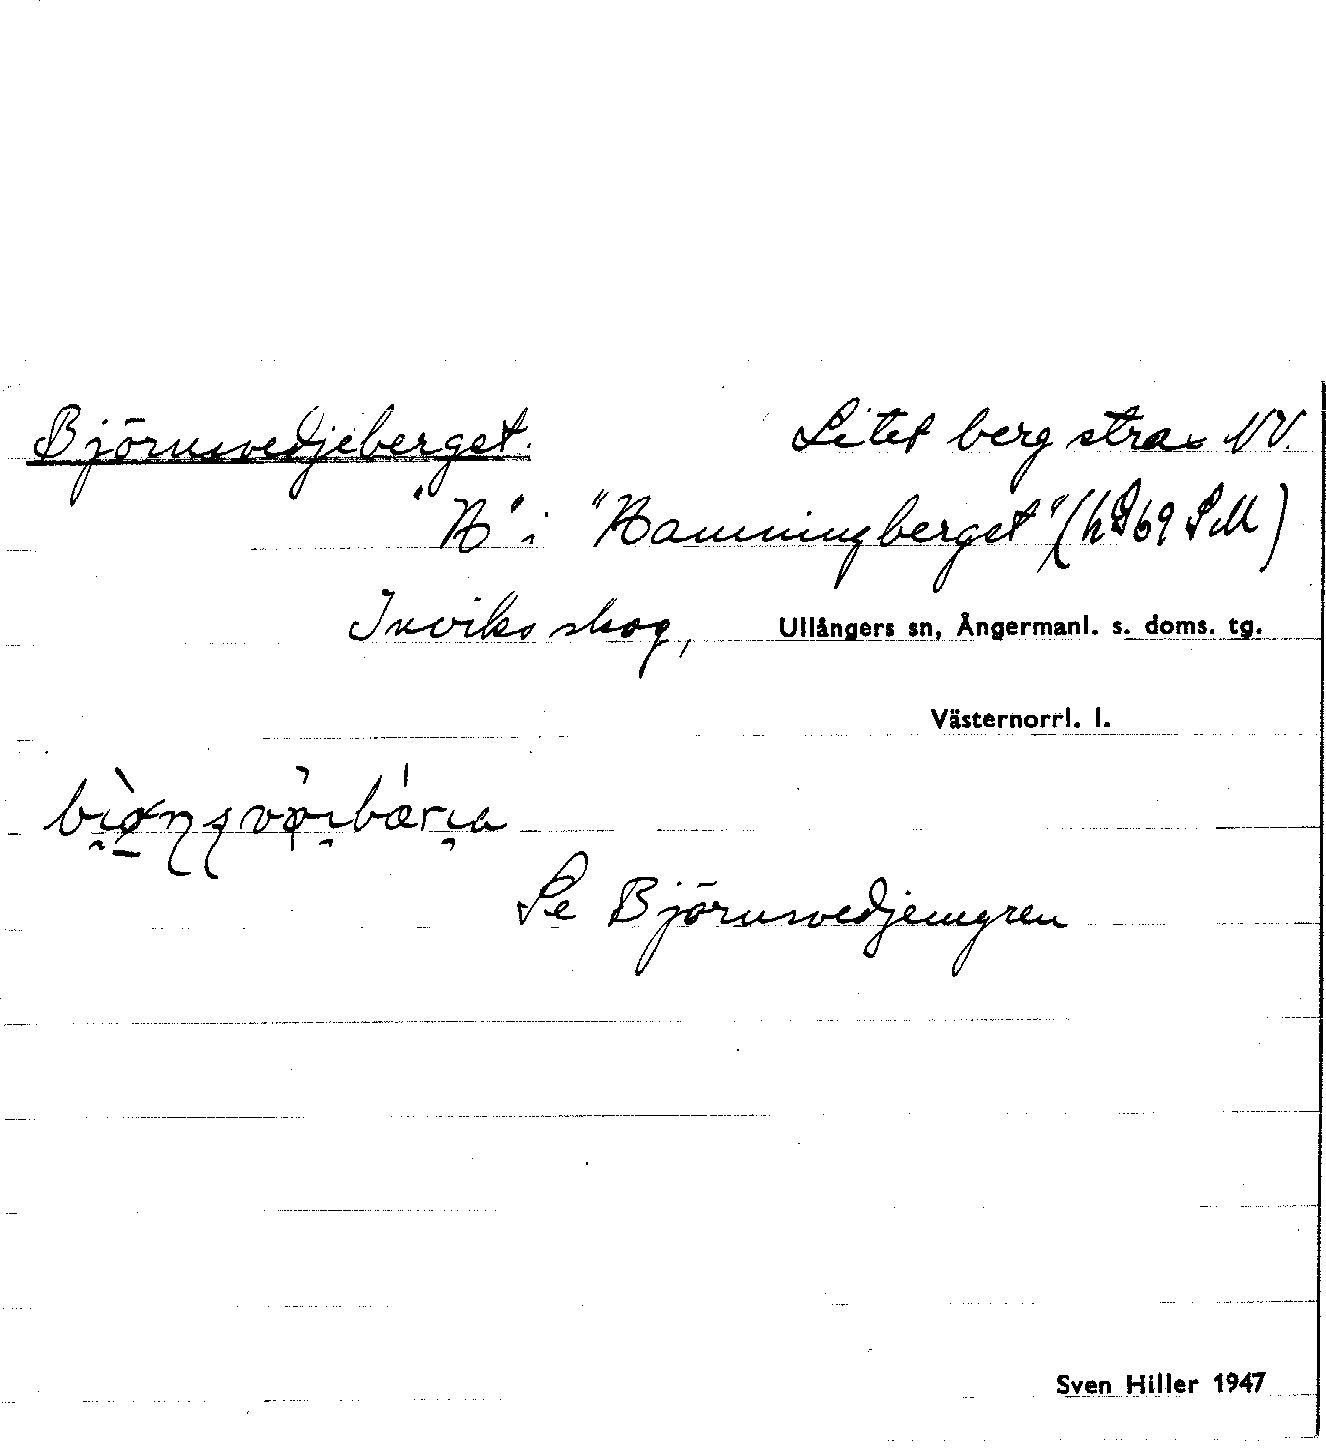 Björnsvedjeberget. Litet berg strax NV.
"N" i "Namningberget" (h 869 SM)
Inviks skog, Ullångers sn, Ångermanl. s. doms. tg.
Västernorrl. l.
Se Björnsvedjemyren
Sven Hiller 1947